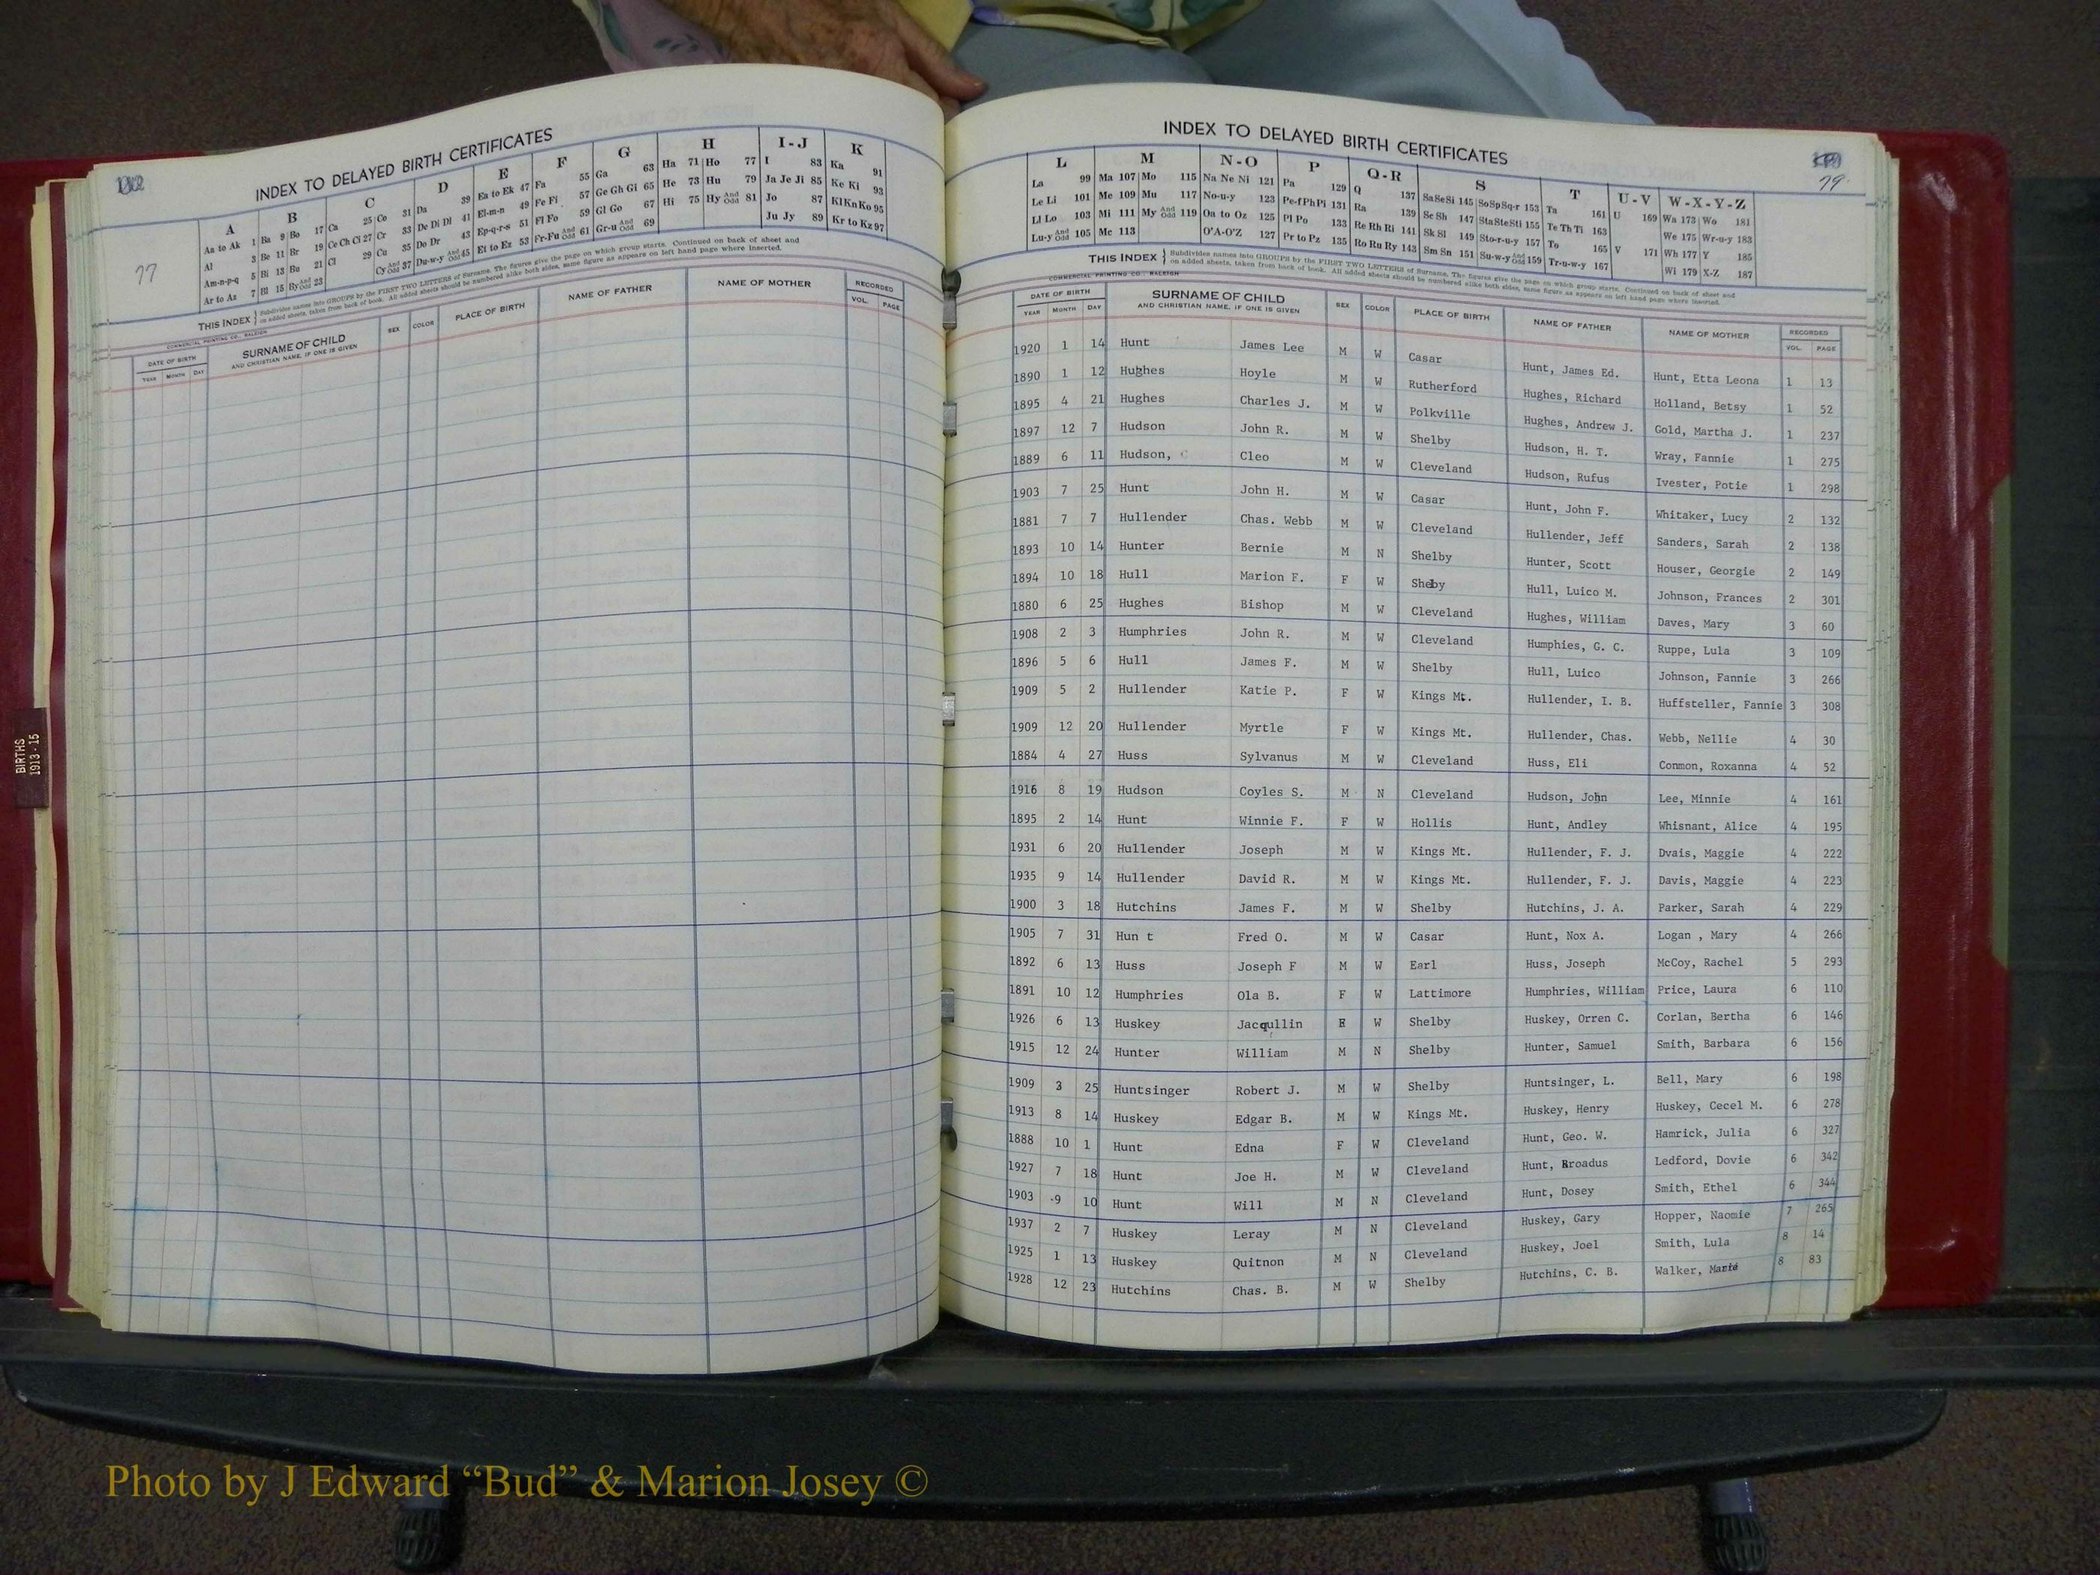 INDEX TO DELAYED BIRTH CERTIFICATES
77
A B C D E F G H I-J K
Aa to Ak 1 Ba 9 Bo 17 Ca 25 Co 31 Da 39 Ea to Ek 47 Fa 55 Ga 63 Ha 71 Ho 77 I 83 Ka 91
Al 3 Be 11 Br 19 Ce Ch Ci 27 Cr 33 De Di Dl 41 El-m-n 49 Fe Fi 57 Ge Gh Gi 65 He 73 Hu 79 Ja Je Ji 85 Ke Ki 93
Am-n-p-q 5 Bi 13 Bu 21 Cl 29 Cu 35 Do Dr 43 Ep-q-r-s 51 Fl Fo 59 Gl Go 67 Hi 75 Hy And Odd 81 Jo 87 Kl Kn Ko 95
Ar to Az 7 Bl 15 By And Odd 23 Cy And Odd 37 Du-w-y And Odd 45 Et to Ez 53 Fr-Fu And Odd 61 Gr-u And Odd 69 Ju Jy 89 Kr to Kz 97
THIS INDEX Subdivides names into GROUPS by the FIRST TWO LETTERS of Surname. The figures give the page on which group starts. Continued on back of sheet and
on added sheets, taken from back of book. All added sheets should be numbered alike both sides, same figure as appears on left hand page where inserted.
COMMERCIAL PRINTING CO., RALEIGH
DATE OF BIRTH SURNAME OF CHILD SEX COLOR PLACE OF BIRTH NAME OF FATHER NAME OF MOTHER RECORDED
YEAR MONTH DAY AND CHRISTIAN NAME, IF ONE IS GIVEN VOL. PAGE
INDEX TO DELAYED BIRTH CERTIFICATES
79
L M N-O P Q-R S T U-V W-X-Y-Z
La 99 Ma 107 Mo 115 Na Ne Ni 121 Pa 129 Q 137 Sa Se Si 145 So Sp Sq-r 153 Ta 161 U 169 Wa 173 Wo 181
Le Li 101 Me 109 Mu 117 No-u-y 123 Pe-f Ph Pi 131 Ra 139 Sc Sh 147 Sta Ste Sti 155 Te Th Ti 163 We 175 Wr-u-y 183
Ll Lo 103 Mi 111 My And Odd 119 Oa to Oz 125 Pl Po 133 Re Rh Ri 141 Sk Sl 149 Sto-r-u-y 157 To 165 V 171 Wh 177 Y 185
Lu-y And Odd 105 Mc 113 O'A-O'Z 127 Pr to Pz 135 Ro Ru Ry 143 Sm Sn 151 Su-w-y And Odd 159 Tr-u-w-y 167 Wi 179 X-Z 187
THIS INDEX Subdivides names into GROUPS by the FIRST TWO LETTERS of Surname. The figures give the page on which group starts. Continued on back of sheet and
on added sheets, taken from back of book. All added sheets should be numbered alike both sides, same figure as appears on left hand page where inserted.
COMMERCIAL PRINTING CO., RALEIGH
DATE OF BIRTH SURNAME OF CHILD SEX COLOR PLACE OF BIRTH NAME OF FATHER NAME OF MOTHER RECORDED
YEAR MONTH DAY AND CHRISTIAN NAME, IF ONE IS GIVEN VOL. PAGE
1920 1 14 Hunt James Lee M W Casar Hunt, James Ed. Hunt, Etta Leona 1 13
1890 1 12 Hughes Hoyle M W Rutherford Hughes, Richard Holland, Betsy 1 52
1895 4 21 Hughes Charles J. M W Polkville Hughes, Andrew J. Gold, Martha J. 1 237
1897 12 7 Hudson John R. M W Shelby Hudson, H. T. Wray, Fannie 1 275
1889 6 11 Hudson, C Cleo M W Cleveland Hudson, Rufus Ivester, Potie 1 298
1903 7 25 Hunt John H. M W Casar Hunt, John F. Whitaker, Lucy 2 132
1881 7 7 Hullender Chas. Webb M W Cleveland Hullender, Jeff Sanders, Sarah 2 138
1893 10 14 Hunter Bernie M N Shelby Hunter, Scott Houser, Georgie 2 149
1894 10 18 Hull Marion F. F W Sheby Hull, Luico M. Johnson, Frances 2 301
1880 6 25 Hughes Bishop M W Cleveland Hughes, William Daves, Mary 3 60
1908 2 3 Humphries John R. M W Cleveland Humphies, G. C. Ruppe, Lula 3 109
1896 5 6 Hull James F. M W Shelby Hull, Luico Johnson, Fannie 3 266
1909 5 2 Hullender Katie P. F W Kings Mt. Hullender, I. B. Huffsteller, Fannie 3 308
1909 12 20 Hullender Myrtle F W Kings Mt. Hullender, Chas. Webb, Nellie 4 30
1884 4 27 Huss Sylvanus M W Cleveland Huss, Eli Conmon, Roxanna 4 52
1916 8 19 Hudson Coyles S. M N Cleveland Hudson, John Lee, Minnie 4 161
1895 2 14 Hunt Winnie F. F W Hollis Hunt, Andley Whisnant, Alice 4 195
1931 6 20 Hullender Joseph M W Kings Mt. Hullender, F. J. Dvais, Maggie 4 222
1935 9 14 Hullender David R. M W Kings Mt. Hullender, F. J. Davis, Maggie 4 223
1900 3 18 Hutchins James F. M W Shelby Hutchins, J. A. Parker, Sarah 4 229
1905 7 31 Hun t Fred O. M W Casar Hunt, Nox A. Logan , Mary 4 266
1892 6 13 Huss Joseph F M W Earl Huss, Joseph McCoy, Rachel 5 293
1891 10 12 Humphries Ola B. F W Lattimore Humphries, William Price, Laura 6 110
1926 6 13 Huskey Jacqullin F W Shelby Huskey, Orren C. Corlan, Bertha 6 146
1915 12 24 Hunter William M N Shelby Hunter, Samuel Smith, Barbara 6 156
1909 3 25 Huntsinger Robert J. M W Shelby Huntsinger, L. Bell, Mary 6 198
1913 8 14 Huskey Edgar B. M W Kings Mt. Huskey, Henry Huskey, Cecel M. 6 278
1888 10 1 Hunt Edna F W Cleveland Hunt, Geo. W. Hamrick, Julia 6 327
1927 7 18 Hunt Joe H. M W Cleveland Hunt, Broadus Ledford, Dovie 6 342
1903 9 10 Hunt Will M N Cleveland Hunt, Dosey Smith, Ethel 6 344
1937 2 7 Huskey Leray M N Cleveland Huskey, Gary Hopper, Naomie 7 265
1925 1 13 Huskey Quitnon M N Cleveland Huskey, Joel Smith, Lula 8 14
1928 12 23 Hutchins Chas. B. M W Shelby Hutchins, C. B. Walker, Marie 8 83
BIRTHS
1913-15
Photo by J Edward “Bud” & Marion Josey ©